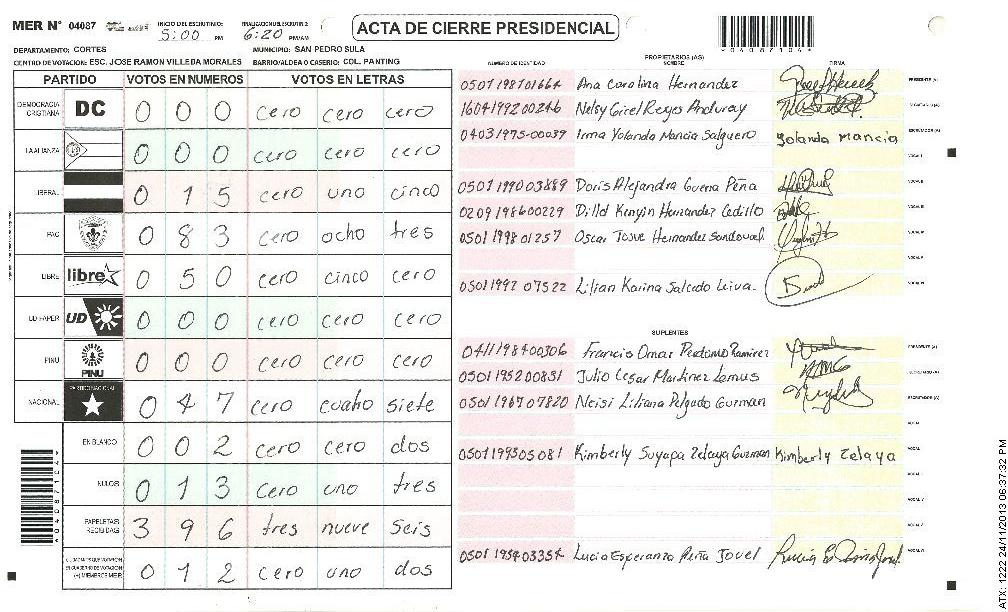 MER N° 04087 INICIO DEL ESCRUTINIO: 5:00 PM 6:20 PM/AM
ACTA DE CIERRE PRESIDENCIAL
*04087104*
DEPARTAMENTO: CORTES MUNICIPIO: SAN PEDRO SULA
CENTRO DE VOTACION: ESC. JOSE RAMON VILLEDA MORALES BARRIO/ALDEA O CASERIO: COL. PANTING
PARTIDO VOTOS EN NUMEROS VOTOS EN LETRAS
DEMOCRACIA CRISTIANA DC 0 0 0 cero cero cero
LA ALIANZA 0 0 0 cero cero cero
LIBERAL 0 1 5 cero uno cinco
PAC 0 8 3 cero ocho tres
LIBRE libre 0 5 0 cero cinco cero
UD FAPER UD 0 0 0 cero cero cero
PINU PINU 0 0 0 cero cero cero
NACIONAL PARTIDO NACIONAL 0 4 7 cero cuatro siete
EN BLANCO 0 0 2 cero cero dos
NULOS 0 1 3 cero uno tres
PAPELETAS RECIBIDAS 3 9 6 tres nueve seis
0 1 2 cero uno dos
PROPIETARIOS (AS)
NUMERO DE IDENTIDAD NOMBRE FIRMA
0507198701664 Ana Carolina Hernandez PRESIDENTE (A)
1604199200246 Nelsy Girel Reyes Anduray SECRETARIO (A)
04031975-00039 Irma Yolanda Mancia Salguero Yolanda Mancia ESCRUTADOR (A)
VOCAL I
0507199003889 Doris Alejandra Guerra Peña VOCAL II
0209198600229 Dilld Kenyin Hernandez Cedillo VOCAL III
0501199801257 Oscar Josue Hernandez Sandoval VOCAL IV
VOCAL V
0501199207522 Lilian Karina Salcedo Leiva VOCAL VI
SUPLENTES
0411198400306 Francis Omar Perdomo Ramirez PRESIDENTE (A)
0501195200831 Julio Cesar Martinez Lemus SECRETARIO (A)
0501196707820 Neisi Liliana Pelgado Guzman ESCRUTADOR (A)
VOCAL I
0507199505081 Kimberly Suyapa Zelaya Guzman Kimberly Zelaya
0501195403354 Lucia Esperanza Peña Jovel VOCAL VI
ATX: 1222 24/11/2013 06:37:32 PM